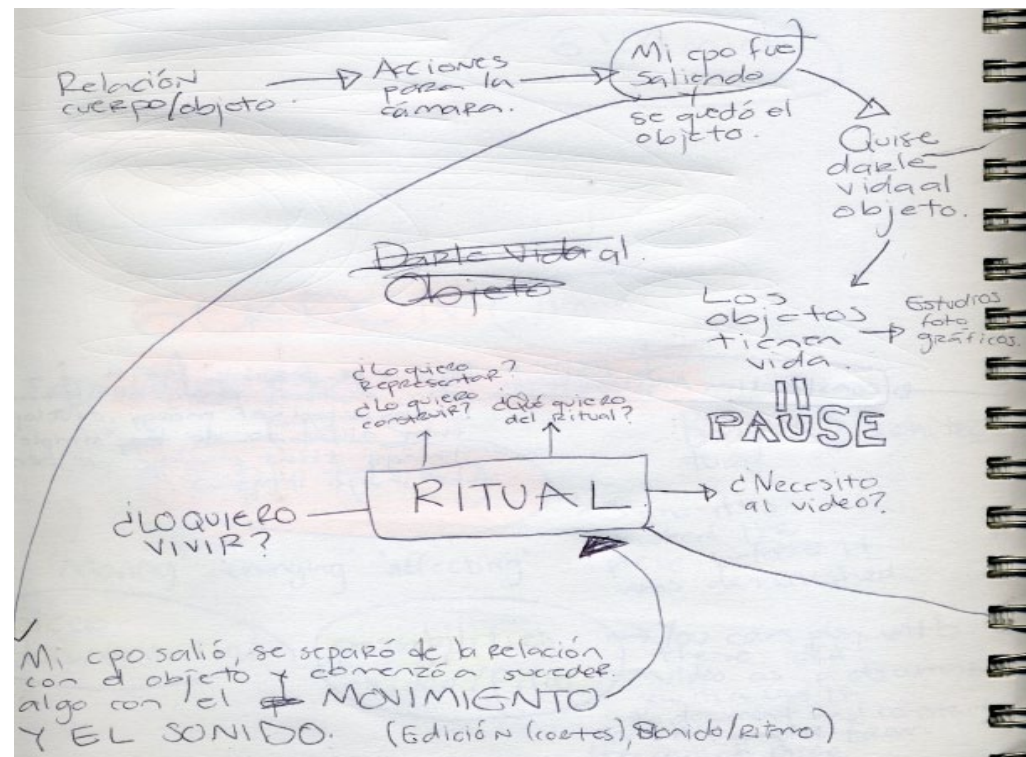 Relación
cuerpo/objeto.
Acciones
para la
cámara.
Mi cpo fue
saliendo
y
se quedó el
objeto.
Quise
darle
vida al
objeto.
Darle Vida al
Objeto
Los
objetos
tienen
vida.
Estudios
foto
gráficos.
PAUSE
¿Lo quiero
Representar?
¿Lo quiero
construir?
¿Qué quiero
del Ritual?
RITUAL
¿LO QUIERO
VIVIR?
¿Necesito
al video?
Mi cpo salió, se separó de la relación
con el objeto y comenzó a suceder
algo con el MOVIMIENTO
Y EL SONIDO. (Edición (cortes), Sonido/Ritmo)